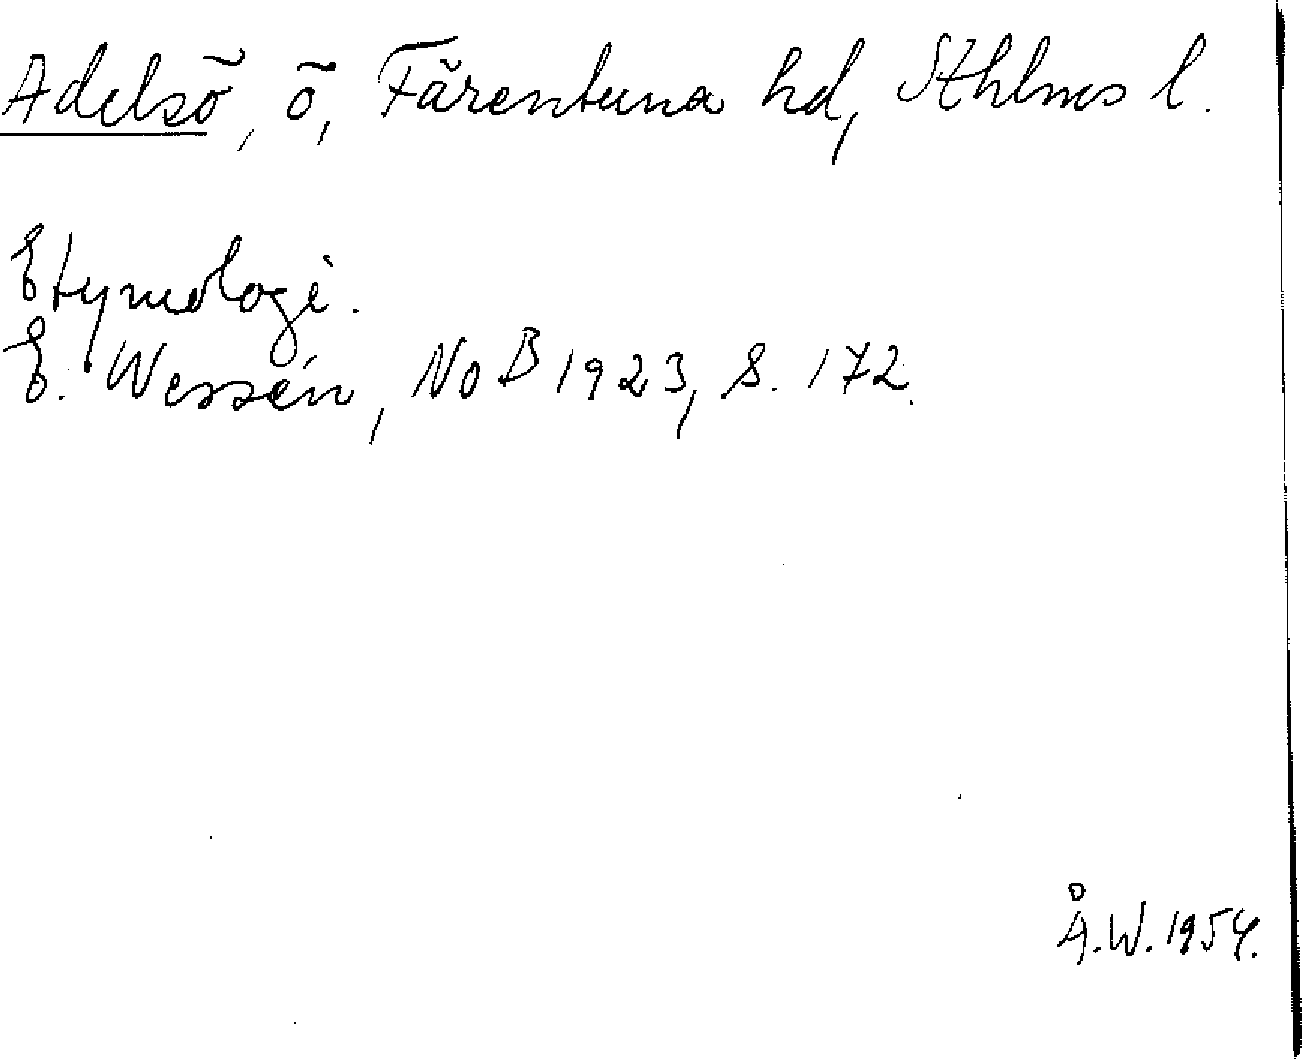 Adelsö, ö, Färentuna hd, Sthlms l.
Etymologi.
E. Wessén, NoB 1923, S. 172.
Å.W. 1954.